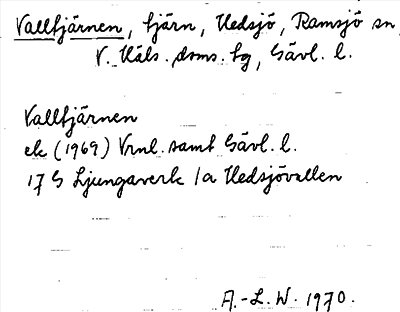 Valltjärnen, tjärn, Hedsjö, Ramsjö sn,
V. Häls. doms. tg, Gävl. l.
Valltjärnen
ek (1969) Vrnl. samt Gävl. l.
17 G Ljungaverk 1a Hedsjövallen
A.-L. W. 1970.